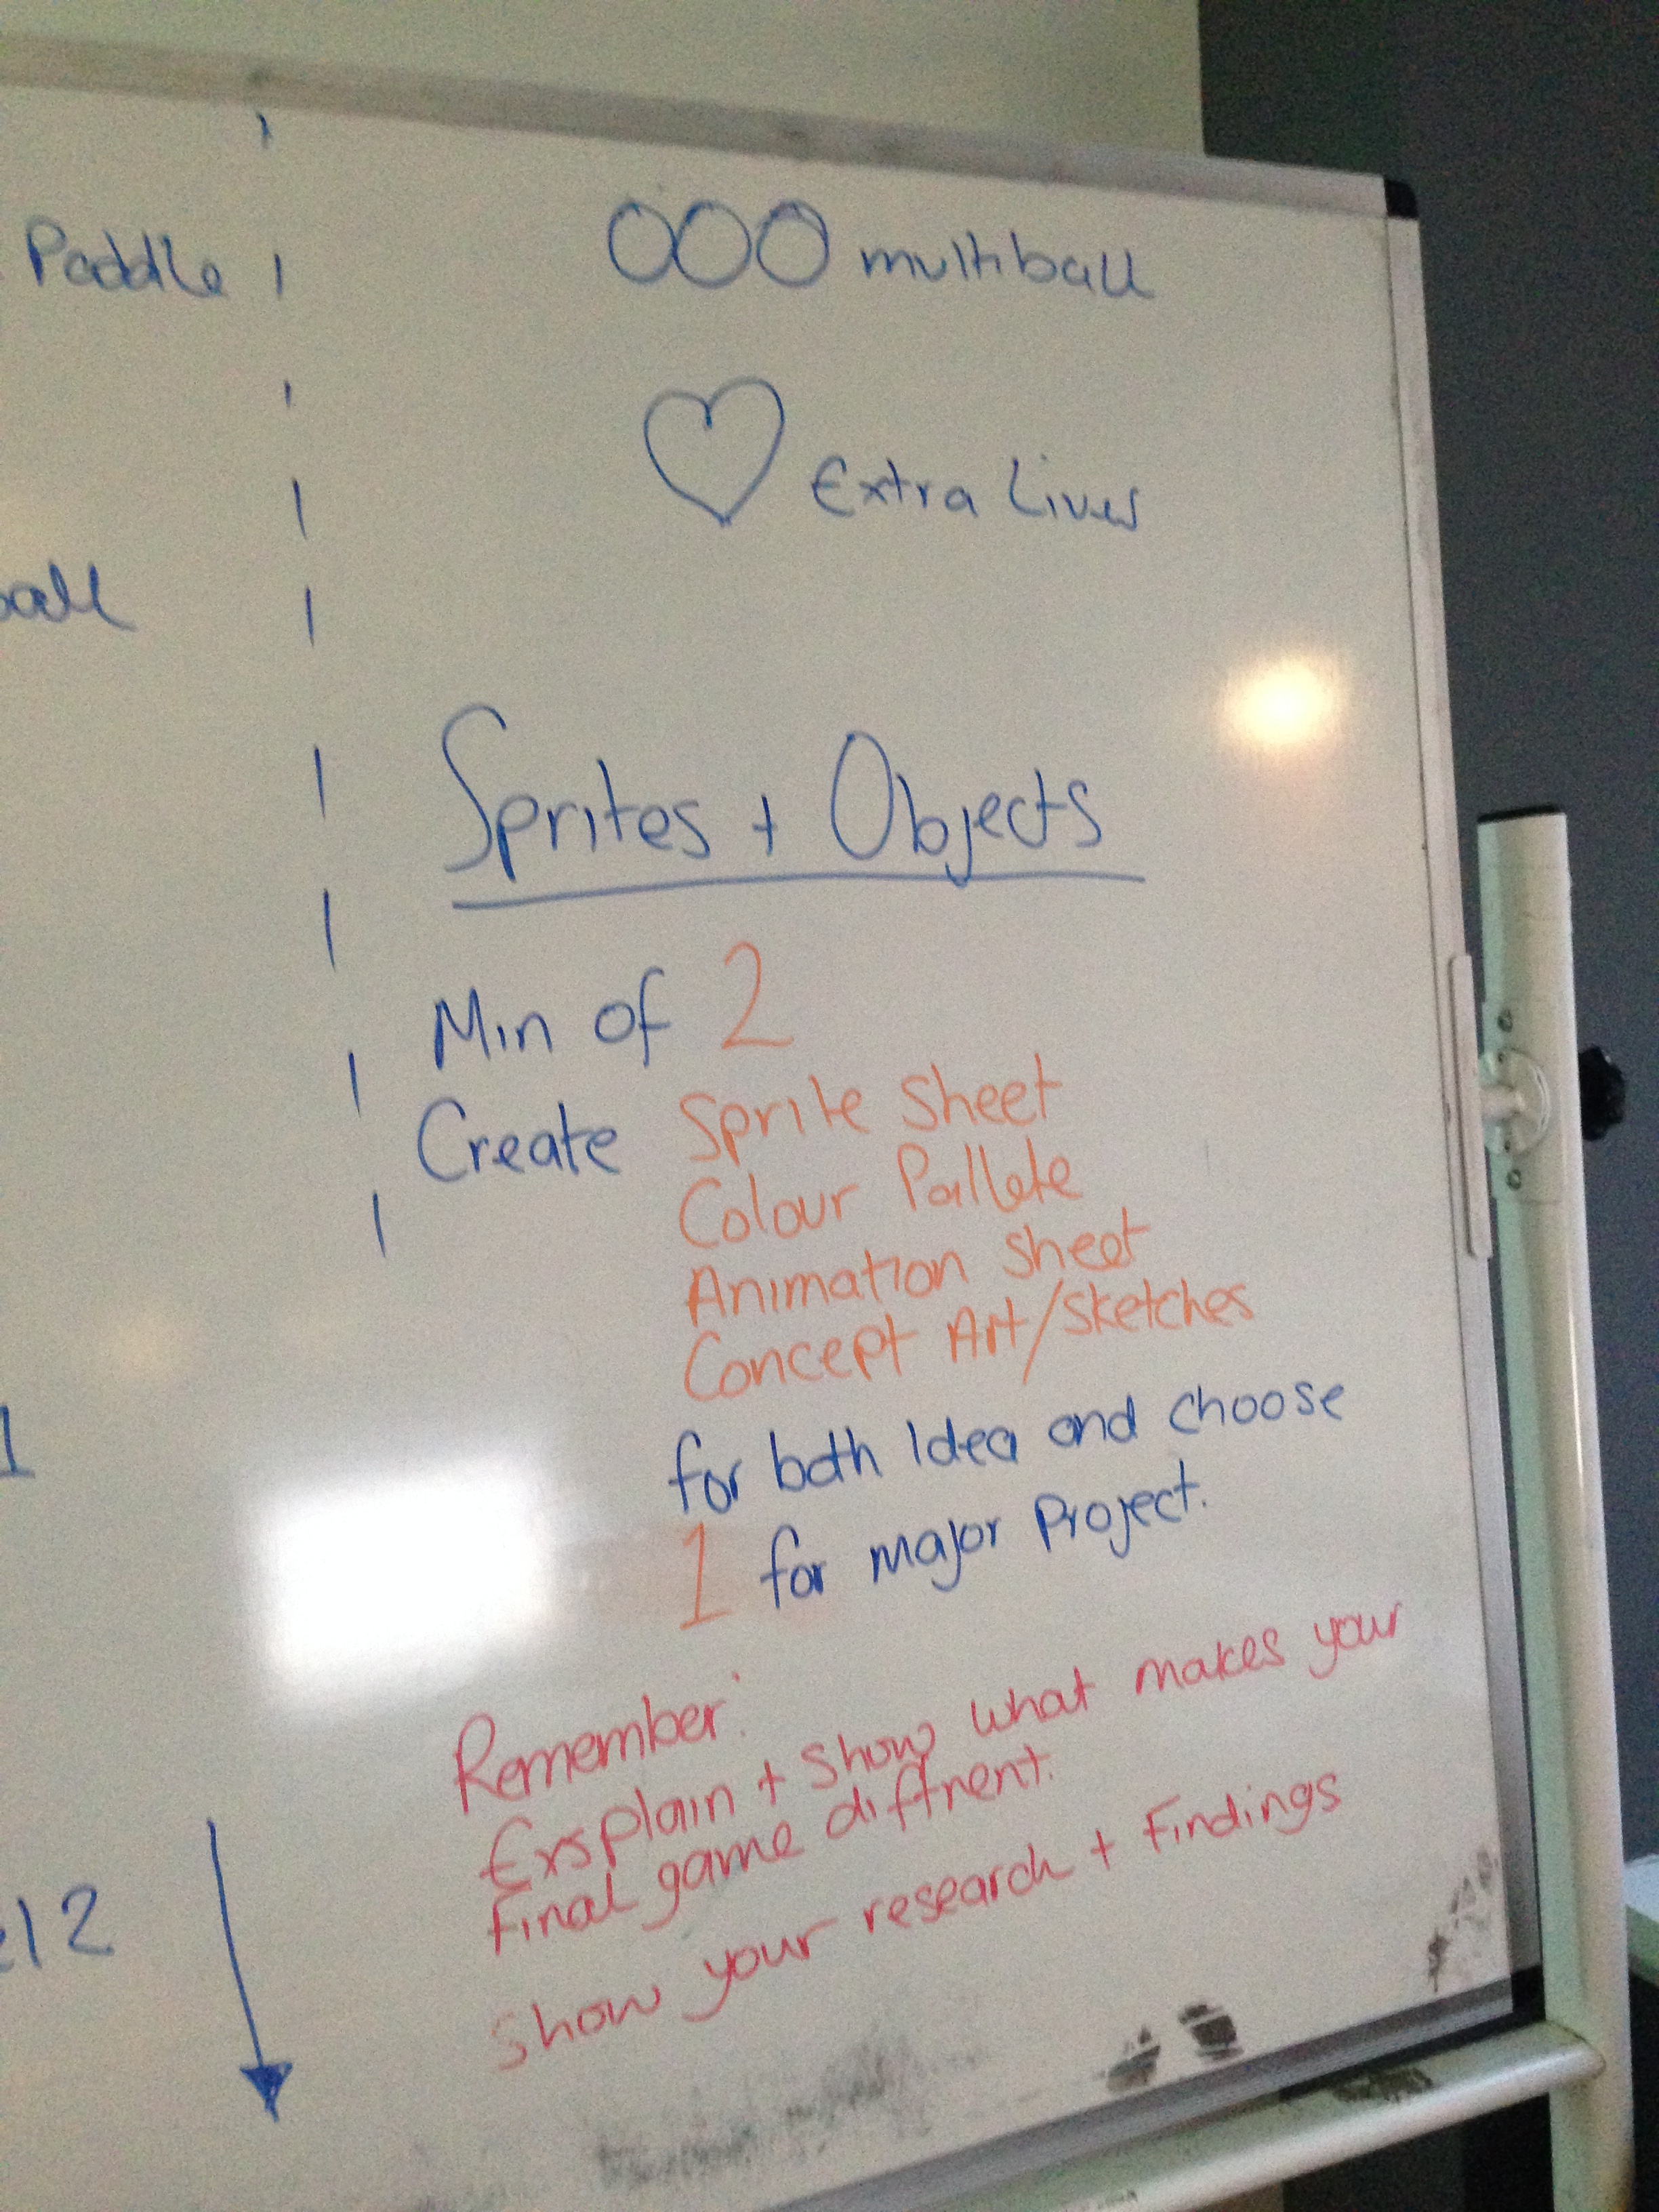 Paddle
OOO multiball
Extra Lives
ball
Sprites + Objects
Min of 2
Create Sprite Sheet
Colour Pallete
Animation Sheet
Concept Art/Sketches
for both Idea and choose
1 for major Project.
Remember:
Exsplain + Show what makes your
Final game diffrent.
Show your research + Findings
1
2